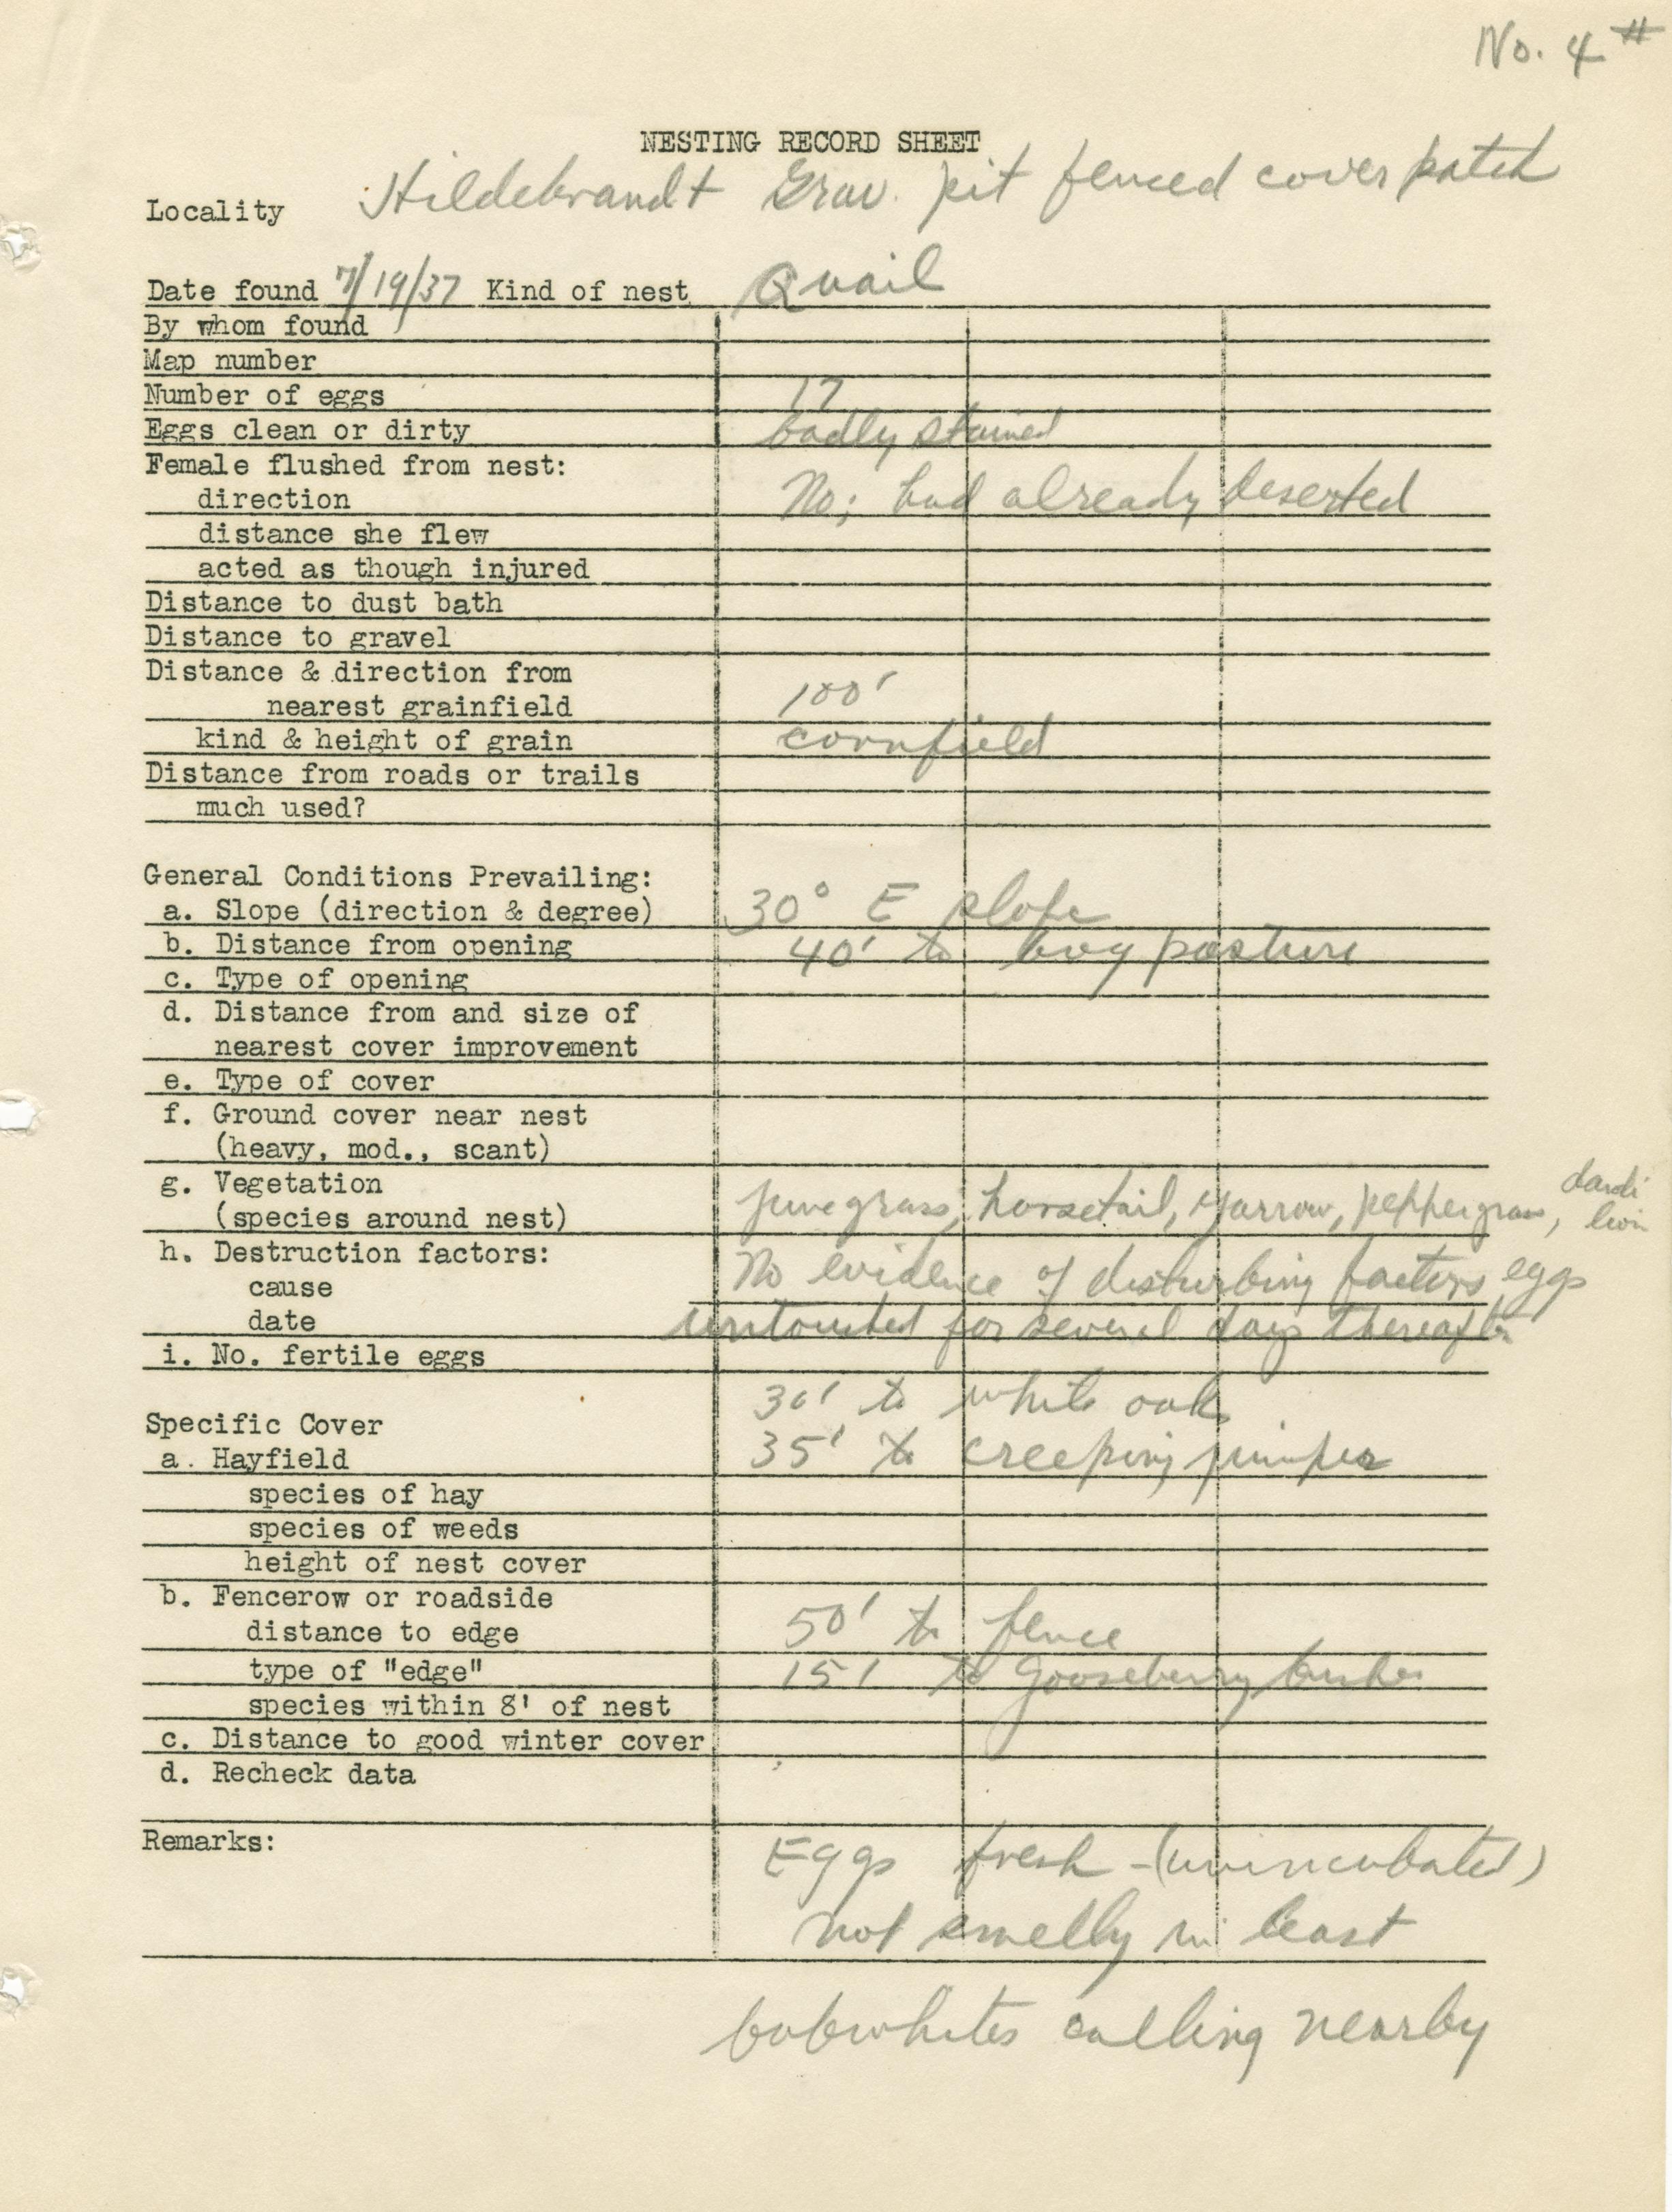 No. 4 #
NESTING RECORD SHEET
Locality Hildebrandt Grav. pit fenced cover patch
Date found 7/19/37 Kind of nest Quail
By whom found
Map number
Number of eggs 17
Eggs clean or dirty badly stained
Female flushed from nest:
direction No; had already deserted
distance she flew
acted as though injured
Distance to dust bath
Distance to gravel
Distance & direction from
nearest grainfield 100'
kind & height of grain cornfield
Distance from roads or trails
much used?
General Conditions Prevailing:
a. Slope (direction & degree) 30° E slope
b. Distance from opening 40' to bog pasture
c. Type of opening
d. Distance from and size of
nearest cover improvement
e. Type of cover
f. Ground cover near nest
(heavy, mod., scant)
g. Vegetation
(species around nest) junegrass, horsetail, yarrow, peppergrass, dandi
lion
h. Destruction factors:
cause No evidence of disturbing factors, eggs
date untouched for several days thereafter
i. No. fertile eggs
30' to white oak
Specific Cover
a. Hayfield 35' to creeping juniper
species of hay
species of weeds
height of nest cover
b. Fencerow or roadside
distance to edge 50' to fence
type of "edge" 15' to gooseberry bushes
species within 8' of nest
c. Distance to good winter cover
d. Recheck data
Remarks: Eggs fresh - (unincubated)
not smelly in least
bobwhites calling nearby